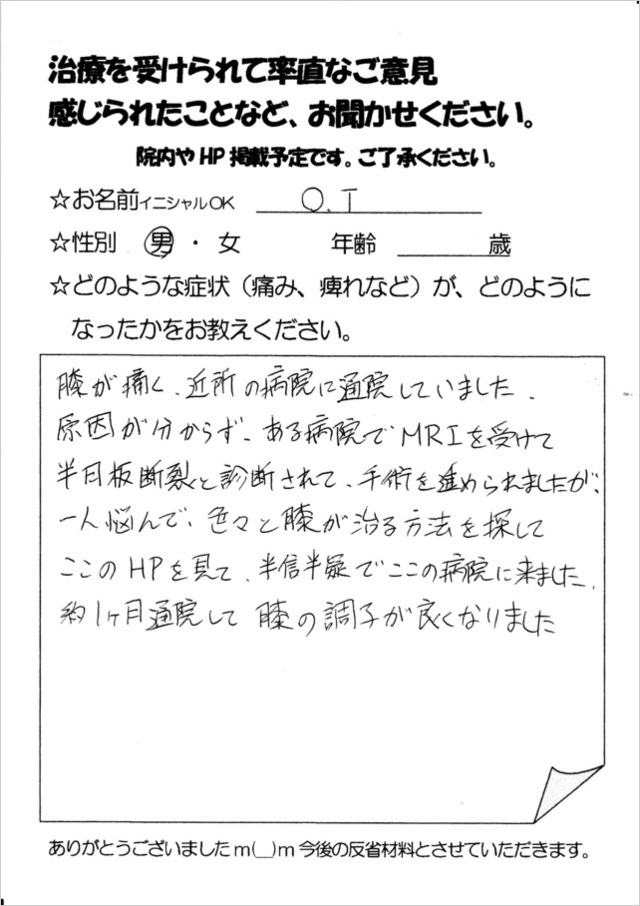 治療を受けられて率直なご意見
感じられたことなど、お聞かせください。
院内やHP掲載予定です。ご了承ください。
☆お名前イニシャルOK O.T
☆性別 男・女 年齢 歳
☆どのような症状（痛み、痺れなど）が、どのように
なったかをお教えください。
膝が痛く、近所の病院に通院していました、
原因が分からず、ある病院でMRIを受けて
半月板断裂と診断されて、手術を進められましたが、
一人悩んで、色々と膝が治る方法を探して
ここのHPを見て、半信半疑でここの病院に来ました、
約1ヶ月通院して膝の調子が良くなりました
ありがとうございましたm(__)m今後の反省材料とさせていただきます。